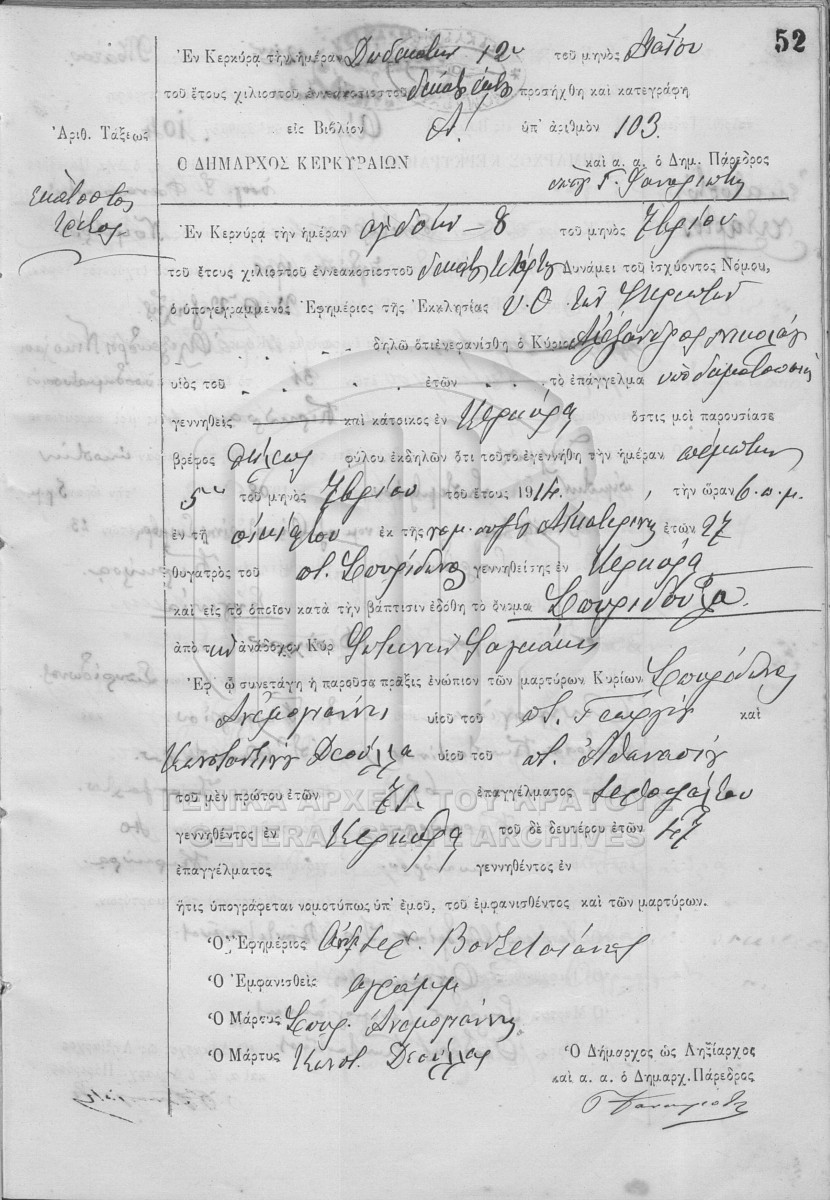 52
Ἐν Κερκύρᾳ τὴν ἡμέραν Δωδεκάτην 12 τοῦ μηνὸς Μαΐου
τοῦ ἔτους χιλιοστοῦ ἐννεακοσιοστοῦ προσήχθη καὶ κατεγράφη
Ἀριθ. Τάξεως εἰς Βιβλίον Α. ὑπ' ἀριθμὸν 103.
Ο ΔΗΜΑΡΧΟΣ ΚΕΡΚΥΡΑΙΩΝ καὶ α. α. ὁ Δημ. Πάρεδρος
Γ. Φαναριώτης
Ἑκατοστὸς
τρίτος
Ἐν Κερκύρᾳ τὴν ἡμέραν ὀγδόην - 8 τοῦ μηνὸς 7βρίου
τοῦ ἔτους χιλιοστοῦ ἐννεακοσιοστοῦ δεκάτου τετάρτου Δυνάμει τοῦ ἰσχύοντος Νόμου,
ὁ ὑπογεγραμμένος Ἐφημέριος τῆς Ἐκκλησίας Υ. Θ. τῶν
δηλῶ ὅτι ἐνεφανίσθη ὁ Κύριος Ἀλέξανδρος Νικολάου
υἱὸς τοῦ ἐτῶν τὸ ἐπάγγελμα ὑποδηματοποιὸς
γεννηθεὶς καὶ κάτοικος ἐν Κερκύρᾳ ὅστις μοὶ παρουσίασε
βρέφος θήλεος φύλου ἐκδηλῶν ὅτι τοῦτο ἐγεννήθη τὴν ἡμέραν πέμπτην
5ην τοῦ μηνὸς 7βρίου τοῦ ἔτους 1914, τὴν ὥραν 6 π.μ.
ἐν τῇ οἰκίᾳ του ἐκ τῆς νομ. συζ. Αἰκατερίνης ἐτῶν 27
θυγατρὸς τοῦ ποτ. Σπυρίδωνος γεννηθείσης ἐν Κερκύρᾳ
καὶ εἰς τὸ ὁποῖον κατὰ τὴν βάπτισιν ἐδόθη τὸ ὄνομα Σπυριδούλα.
ἀπὸ τὴν ἀνάδοχον Κύρ Φωτεινὴν
Ἐφ' ᾧ συνετάγη ἡ παροῦσα πρᾶξις ἐνώπιον τῶν μαρτύρων Κυρίων Σπυρίδωνος
Ἀνεμογιάννη υἱοῦ τοῦ ποτ. Γεωργίου καὶ
Κωνσταντίνου Δεσύλλα υἱοῦ τοῦ ποτ. Ἀθανασίου
τοῦ μὲν πρώτου ἐτῶν 71. ἐπαγγέλματος
ΓΕΝΙΚΑ ΑΡΧΕΙΑ ΤΟΥ ΚΡΑΤΟΥΣ
GENERAL STATE ARCHIVES
γεννηθέντος ἐν Κερκύρᾳ τοῦ δὲ δευτέρου ἐτῶν 47
ἐπαγγέλματος γεννηθέντος ἐν
ἥτις ὑπογράφεται νομοτύπως ὑπ' ἐμοῦ, τοῦ ἐμφανισθέντος καὶ τῶν μαρτύρων.
Ὁ Ἐφημέριος
Ὁ Ἐμφανισθεὶς ἀγράμμ
Ὁ Μάρτυς Σπυρ. Ἀνεμογιάννης
Ὁ Μάρτυς Κωνστ. Δεσύλλας
Ὁ Δήμαρχος ὡς Ληξίαρχος
καὶ α. α. ὁ Δημαρχ. Πάρεδρος